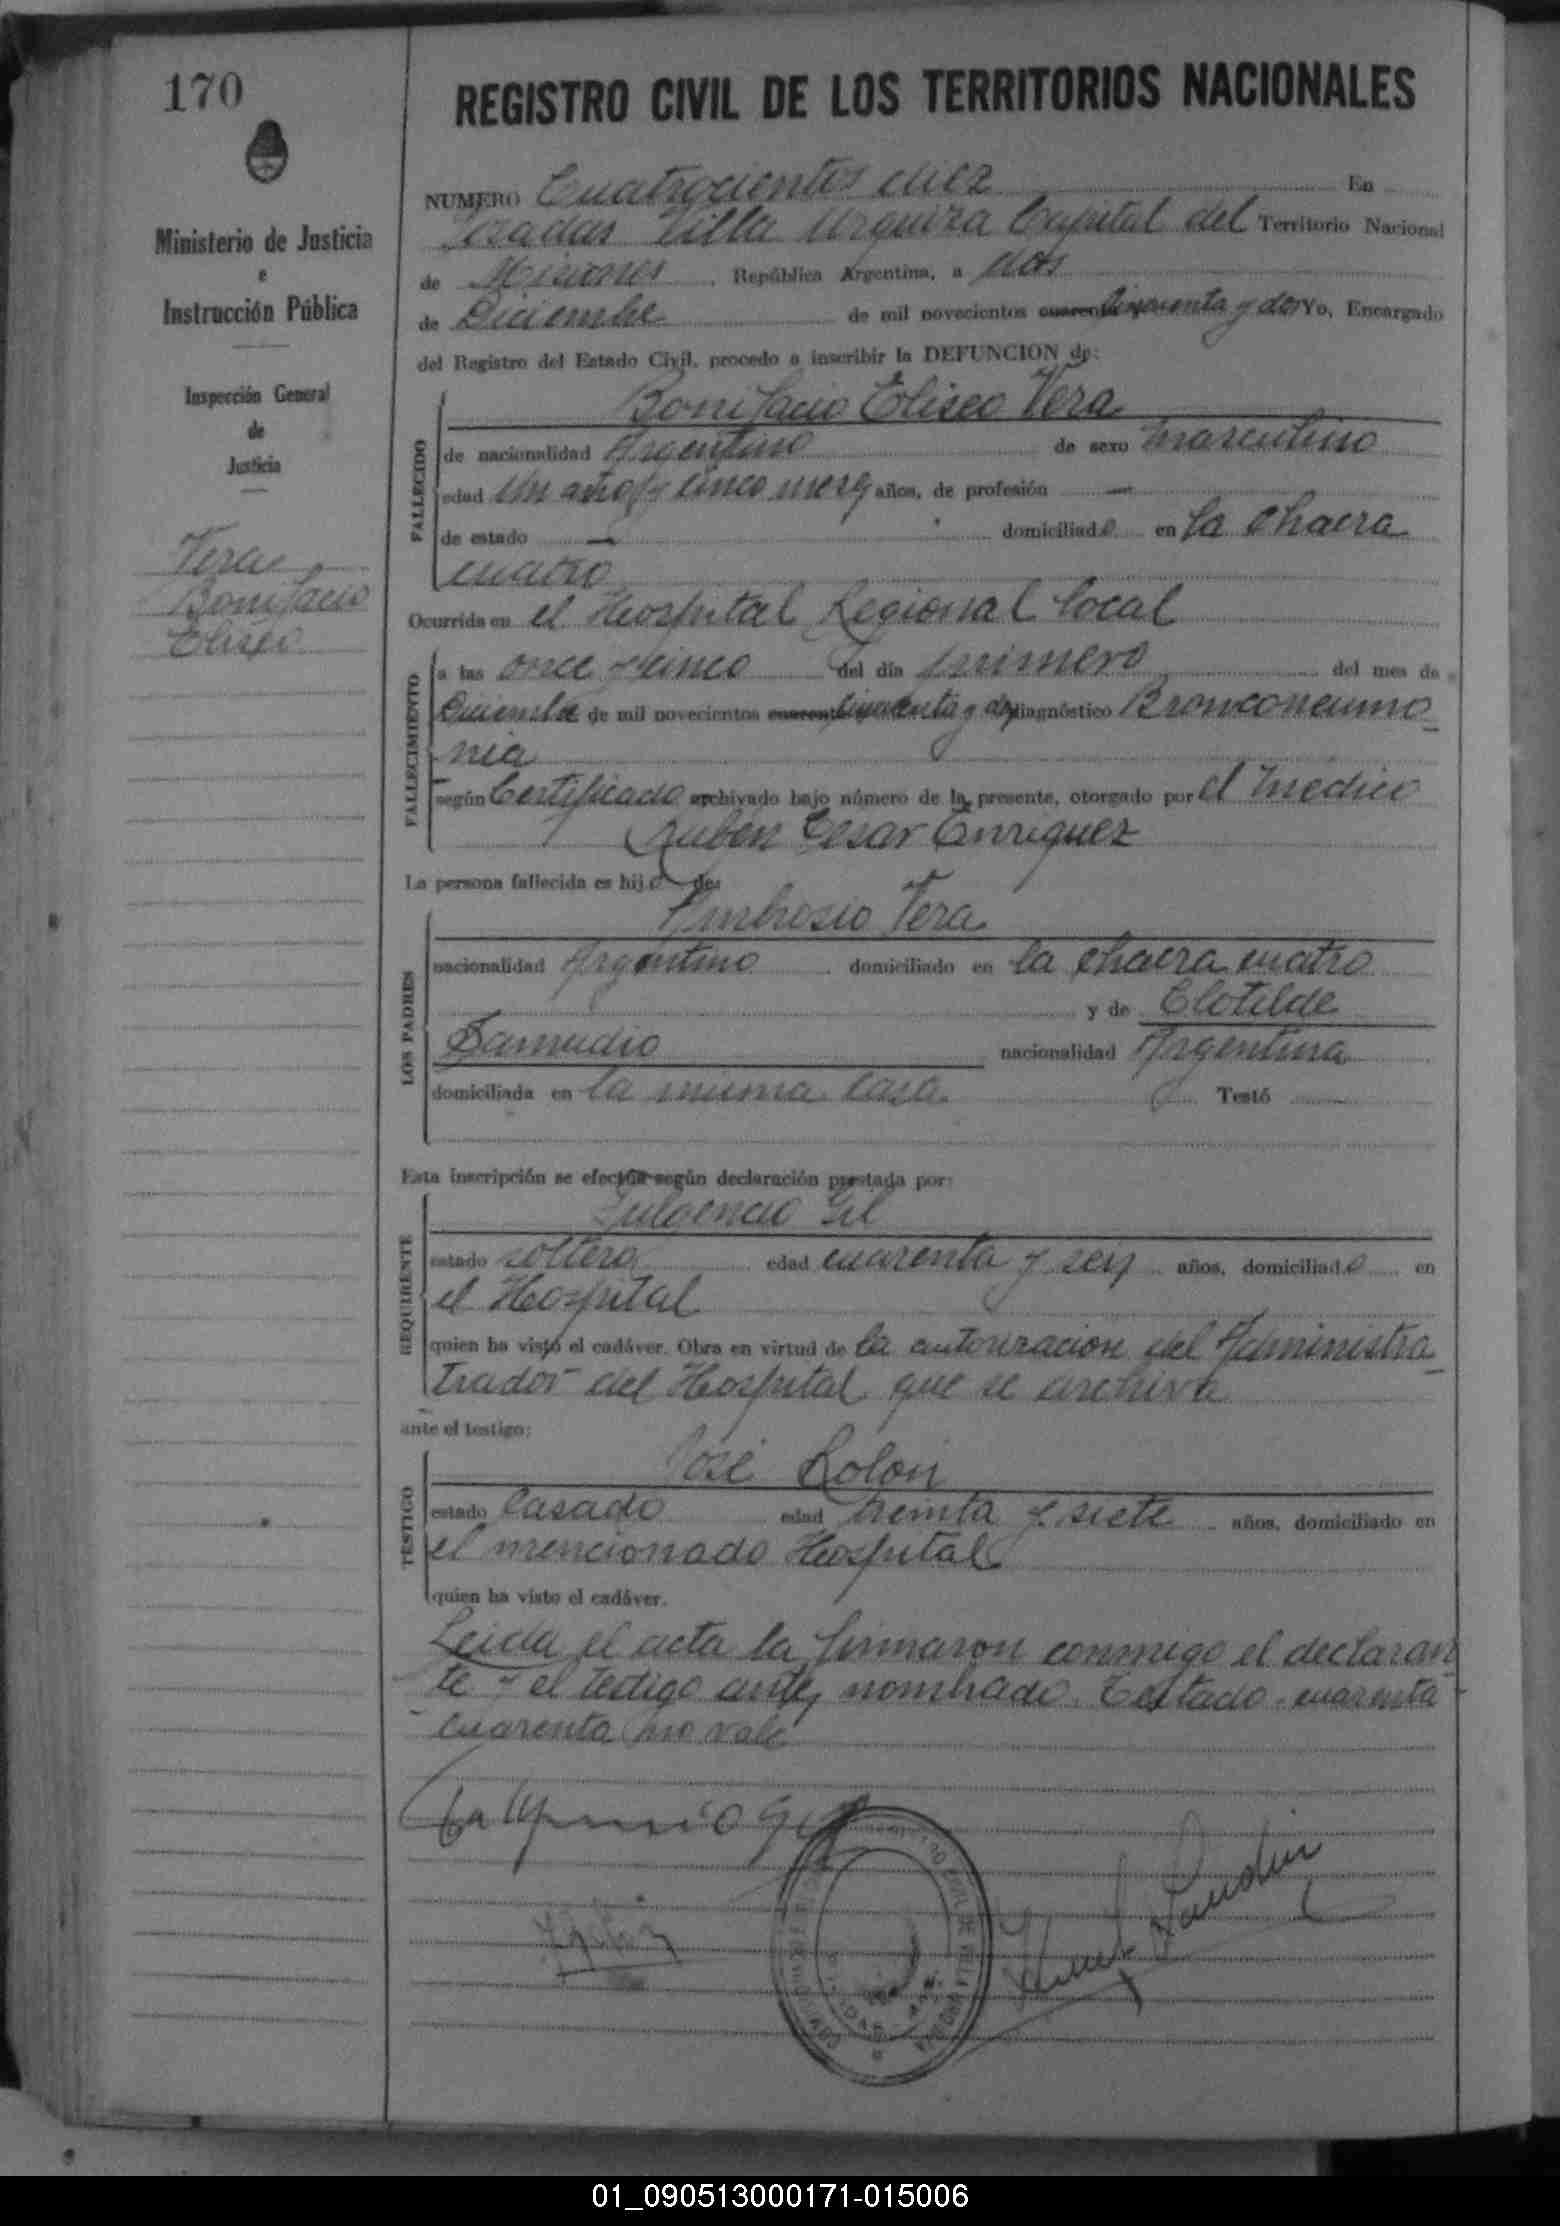 170
REGISTRO CIVIL DE LOS TERRITORIOS NACIONALES
Ministerio de Justicia
e
Instrucción Pública
Inspección General
de
Justicia
Vera
Bonifacio
Eliseo
NUMERO Cuatrocientos diez En
Posadas Villa Urquiza Capital del Territorio Nacional
de Misiones, República Argentina, a dos
de Diciembre de mil novecientos cuarenta cincuenta y dos Yo, Encargado
del Registro del Estado Civil, procedo a inscribir la DEFUNCION de:
FALLECIDO
Bonifacio Eliseo Vera
de nacionalidad Argentino de sexo masculino
edad Un año y cinco meses años, de profesión —
de estado — domiciliado en la chacra
cuatro
Ocurrida en el Hospital Regional local
FALLECIMIENTO
a las once y cinco del día primero del mes de
Diciembre de mil novecientos cuarenta cincuenta y dos diagnóstico Bronconeumo
nia
según Certificado archivado bajo número de la presente, otorgado por el médico
Ruben Cesar Enriquez
La persona fallecida es hijo de:
LOS PADRES
Ambrosio Vera
nacionalidad Argentino domiciliado en la chacra cuatro
y de Clotilde
Samudio nacionalidad Argentina
domiciliada en la misma casa. Testó
Esta inscripción se efectúa según declaración prestada por:
REQUIRENTE
Fulgencio Gil
estado soltero edad cuarenta y seis años, domiciliado en
el Hospital
quien ha visto el cadáver. Obra en virtud de la autorizacion del Administra
trador del Hospital que se archiva
ante el testigo:
TESTIGO
José Rolon
estado casado edad treinta y siete años, domiciliado en
el mencionado Hospital
quien ha visto el cadáver.
Leida el acta la firmaron conmigo el declaran
te y el testigo antes nombrado. Testado - cuarenta -
cuarenta no vale
01_090513000171-015006